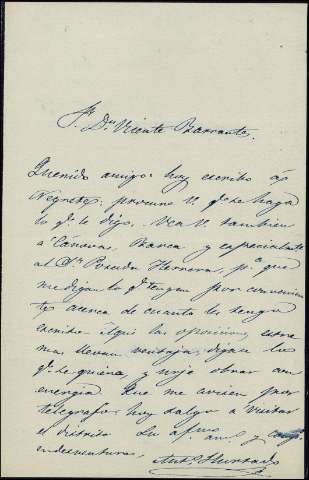 Sr. Dn. Vicente Barrante.
Querido amigo: hoy escribo á
Negrete; procure V. qe. se haga
lo qe. le digo. Vea V. tambien
a Cánovas, Barca y especialmte
al Sr. Posada Herrera, pa. que
me diga lo qe. tengan por convenien
te, acerca de cuanto les tengo
escrito. Aqui las oposiciones
mas llevan ventaja; digan lo
qe. le quiera, y urje obrar con
energia. Que me avisen por
telegrafo; hoy salgo a visitar
el distrito. Su afmo. am. y comp.
en desventuras,
Anto. Hurtado